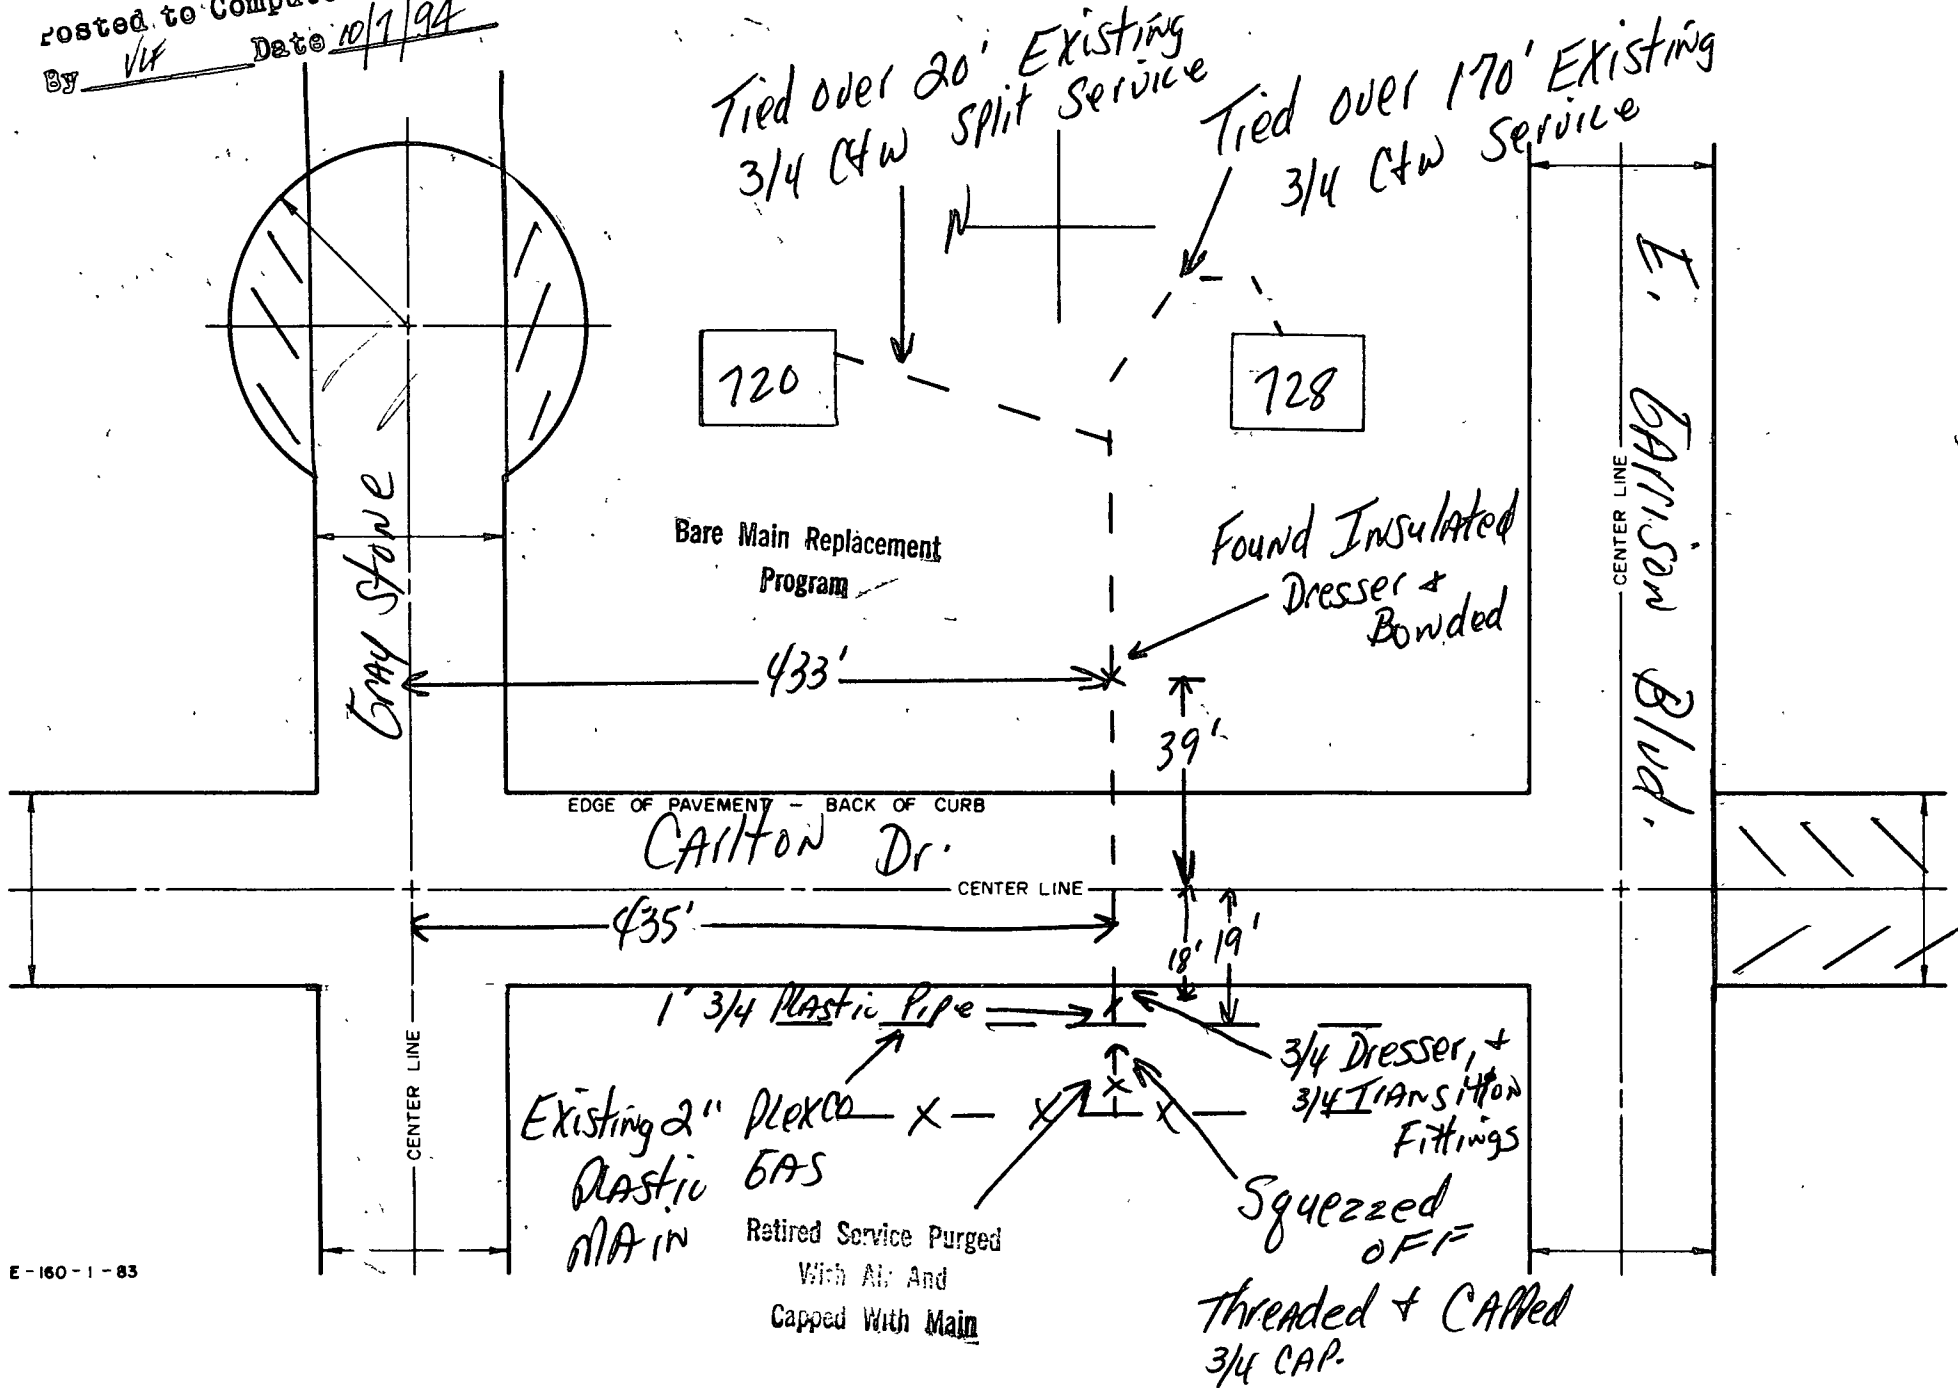 Posted to Compute
By VLF Date 10/7/94
Tied over 20' Existing
3/4 C+W Split Service
Tied over 170' Existing
3/4 C+W Service
N
720
728
E. GArrison Blvd.
CENTER LINE
Gray Stone
Bare Main Replacement
Program
Found Insulated
Dresser +
Bonded
433'
39'
EDGE OF PAVEMENT - BACK OF CURB
CArlton Dr.
CENTER LINE
435'
18'
19'
1' 3/4 Plastic Pipe
3/4 Dresser, +
3/4 TrAnsition
Fittings
CENTER LINE
Existing 2" Plexco
Plastic GAS
MAIN
Squezzed
OFF
Threaded + CAPPed
3/4 CAP.
Retired Service Purged
With Air And
Capped With Main
E-160-1-83